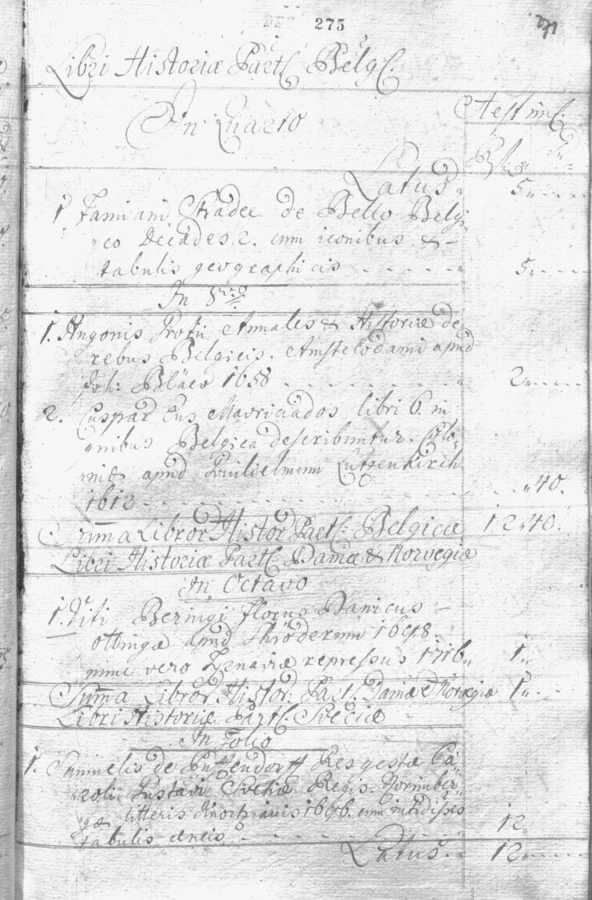 275
Libri Historiæ Part. Belgc.
In Quarto
Aestim.
Latus 5
1 Famiani Stradæ de Bello Belgi
co Decades 2. cum iconibus &
tabulis geographicis 5
In 8vo
1. Hugonis Grotii Annales & Historiæ de
rebus Belgicis. Amstelodami apud
Joh: Blaev 1658 2
2. Caspar Ens Mavriciados libri 6. in
quibus Belgica describuntur. Colo
niæ apud Guilielmum Lutzenkirch
1612 40.
Summa Libror Histor Part. Belgicæ 12 40.
Libri Historiæ Part. Daniæ & Norvegiæ
In Octavo
1. Viti Beringi Florus Danicus
Ottingæ apud Shröderum 1698.
nunc vero Jenaviæ repressus 1716 1
Summa Libror Histor. Part. Daniæ & Norvegiæ 1
Libri Historiæ Part. Sveciæ
In Folio
1. Samuelis de Puffendorff Res gestæ Ca
roli Gustavi Sveciæ Regis. Norimber
gæ litteris Knorzianis 1696. cum
tabulis æneis 12
Latus 12